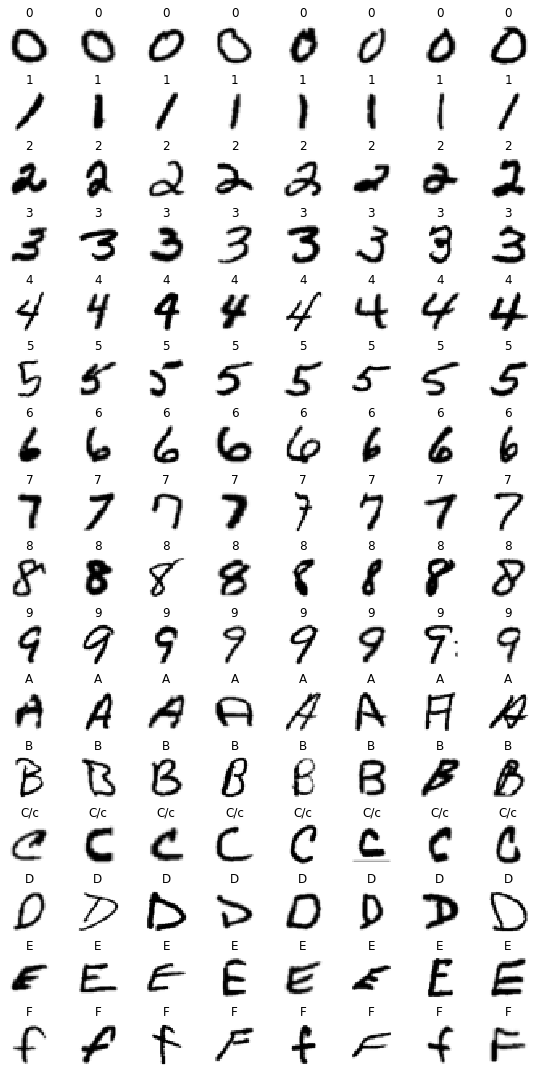 0 0 0 0 0 0 0 0
0 0 0 0 0 0 0 0
1 1 1 1 1 1 1 1
1 1 1 1 1 1 1 1
2 2 2 2 2 2 2 2
2 2 2 2 2 2 2 2
3 3 3 3 3 3 3 3
3 3 3 3 3 3 3 3
4 4 4 4 4 4 4 4
4 4 4 4 4 4 4 4
5 5 5 5 5 5 5 5
5 5 5 5 5 5 5 5
6 6 6 6 6 6 6 6
6 6 6 6 6 6 6 6
7 7 7 7 7 7 7 7
7 7 7 7 7 7 7 7
8 8 8 8 8 8 8 8
8 8 8 8 8 8 8 8
9 9 9 9 9 9 9 9
9 9 9 9 9 9 9: 9
A A A A A A A A
A A A A A A A A
B B B B B B B B
B B B B B B B B
C/c C/c C/c C/c C/c C/c C/c C/c
C C C C C C C C
D D D D D D D D
D D D D D D D D
E E E E E E E E
E E E E E E E E
F F F F F F F F
f f f F f F f F